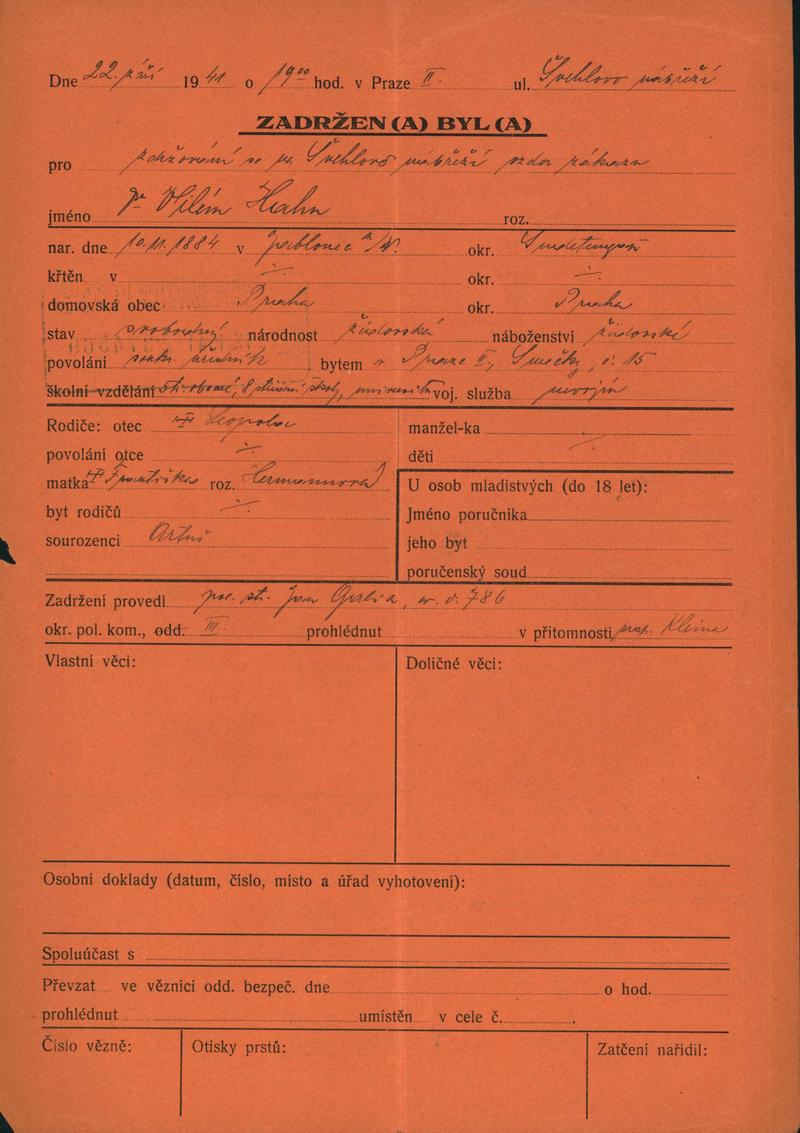 Dne 22. září 1941 o 19⁰⁰ hod. v Praze II. ul. Švehlovo nábřeží
ZADRŽEN(A) BYL(A)
pro zdržování se na Švehlově nábřeží vzdor zákazu
jméno Dr Vilém Hahn roz.
nar. dne 10.11.1884 v Jablonec n/N. okr.
křtěn v ÷ okr. ÷
domovská obec Praha okr. Praha
stav svobodný národnost židovská náboženství židovské
povolání soukr. úředník bytem v Praze II., Smečky, č. 15
školní vzdělání 5 tř. obecné, 8 střední školy, universita voj. služba nevoják
Rodiče: otec Leopold manžel-ka
povolání otce ÷ děti ÷
matka Františka roz. Hermannová
U osob mladistvých (do 18 let):
byt rodičů ÷ Jméno poručníka
sourozenci Artuš jeho byt
poručenský soud
Zadržení provedl Jan č. 786
okr. pol. kom., odd. III. prohlédnut v přítomnosti Kleina
Vlastní věci: Doličné věci:
Osobní doklady (datum, číslo, místo a úřad vyhotovení):
Spoluúčast s
Převzat ve věznici odd. bezpeč. dne o hod.
prohlédnut umístěn v cele č.
Číslo vězně: Otisky prstů: Zatčení nařídil: